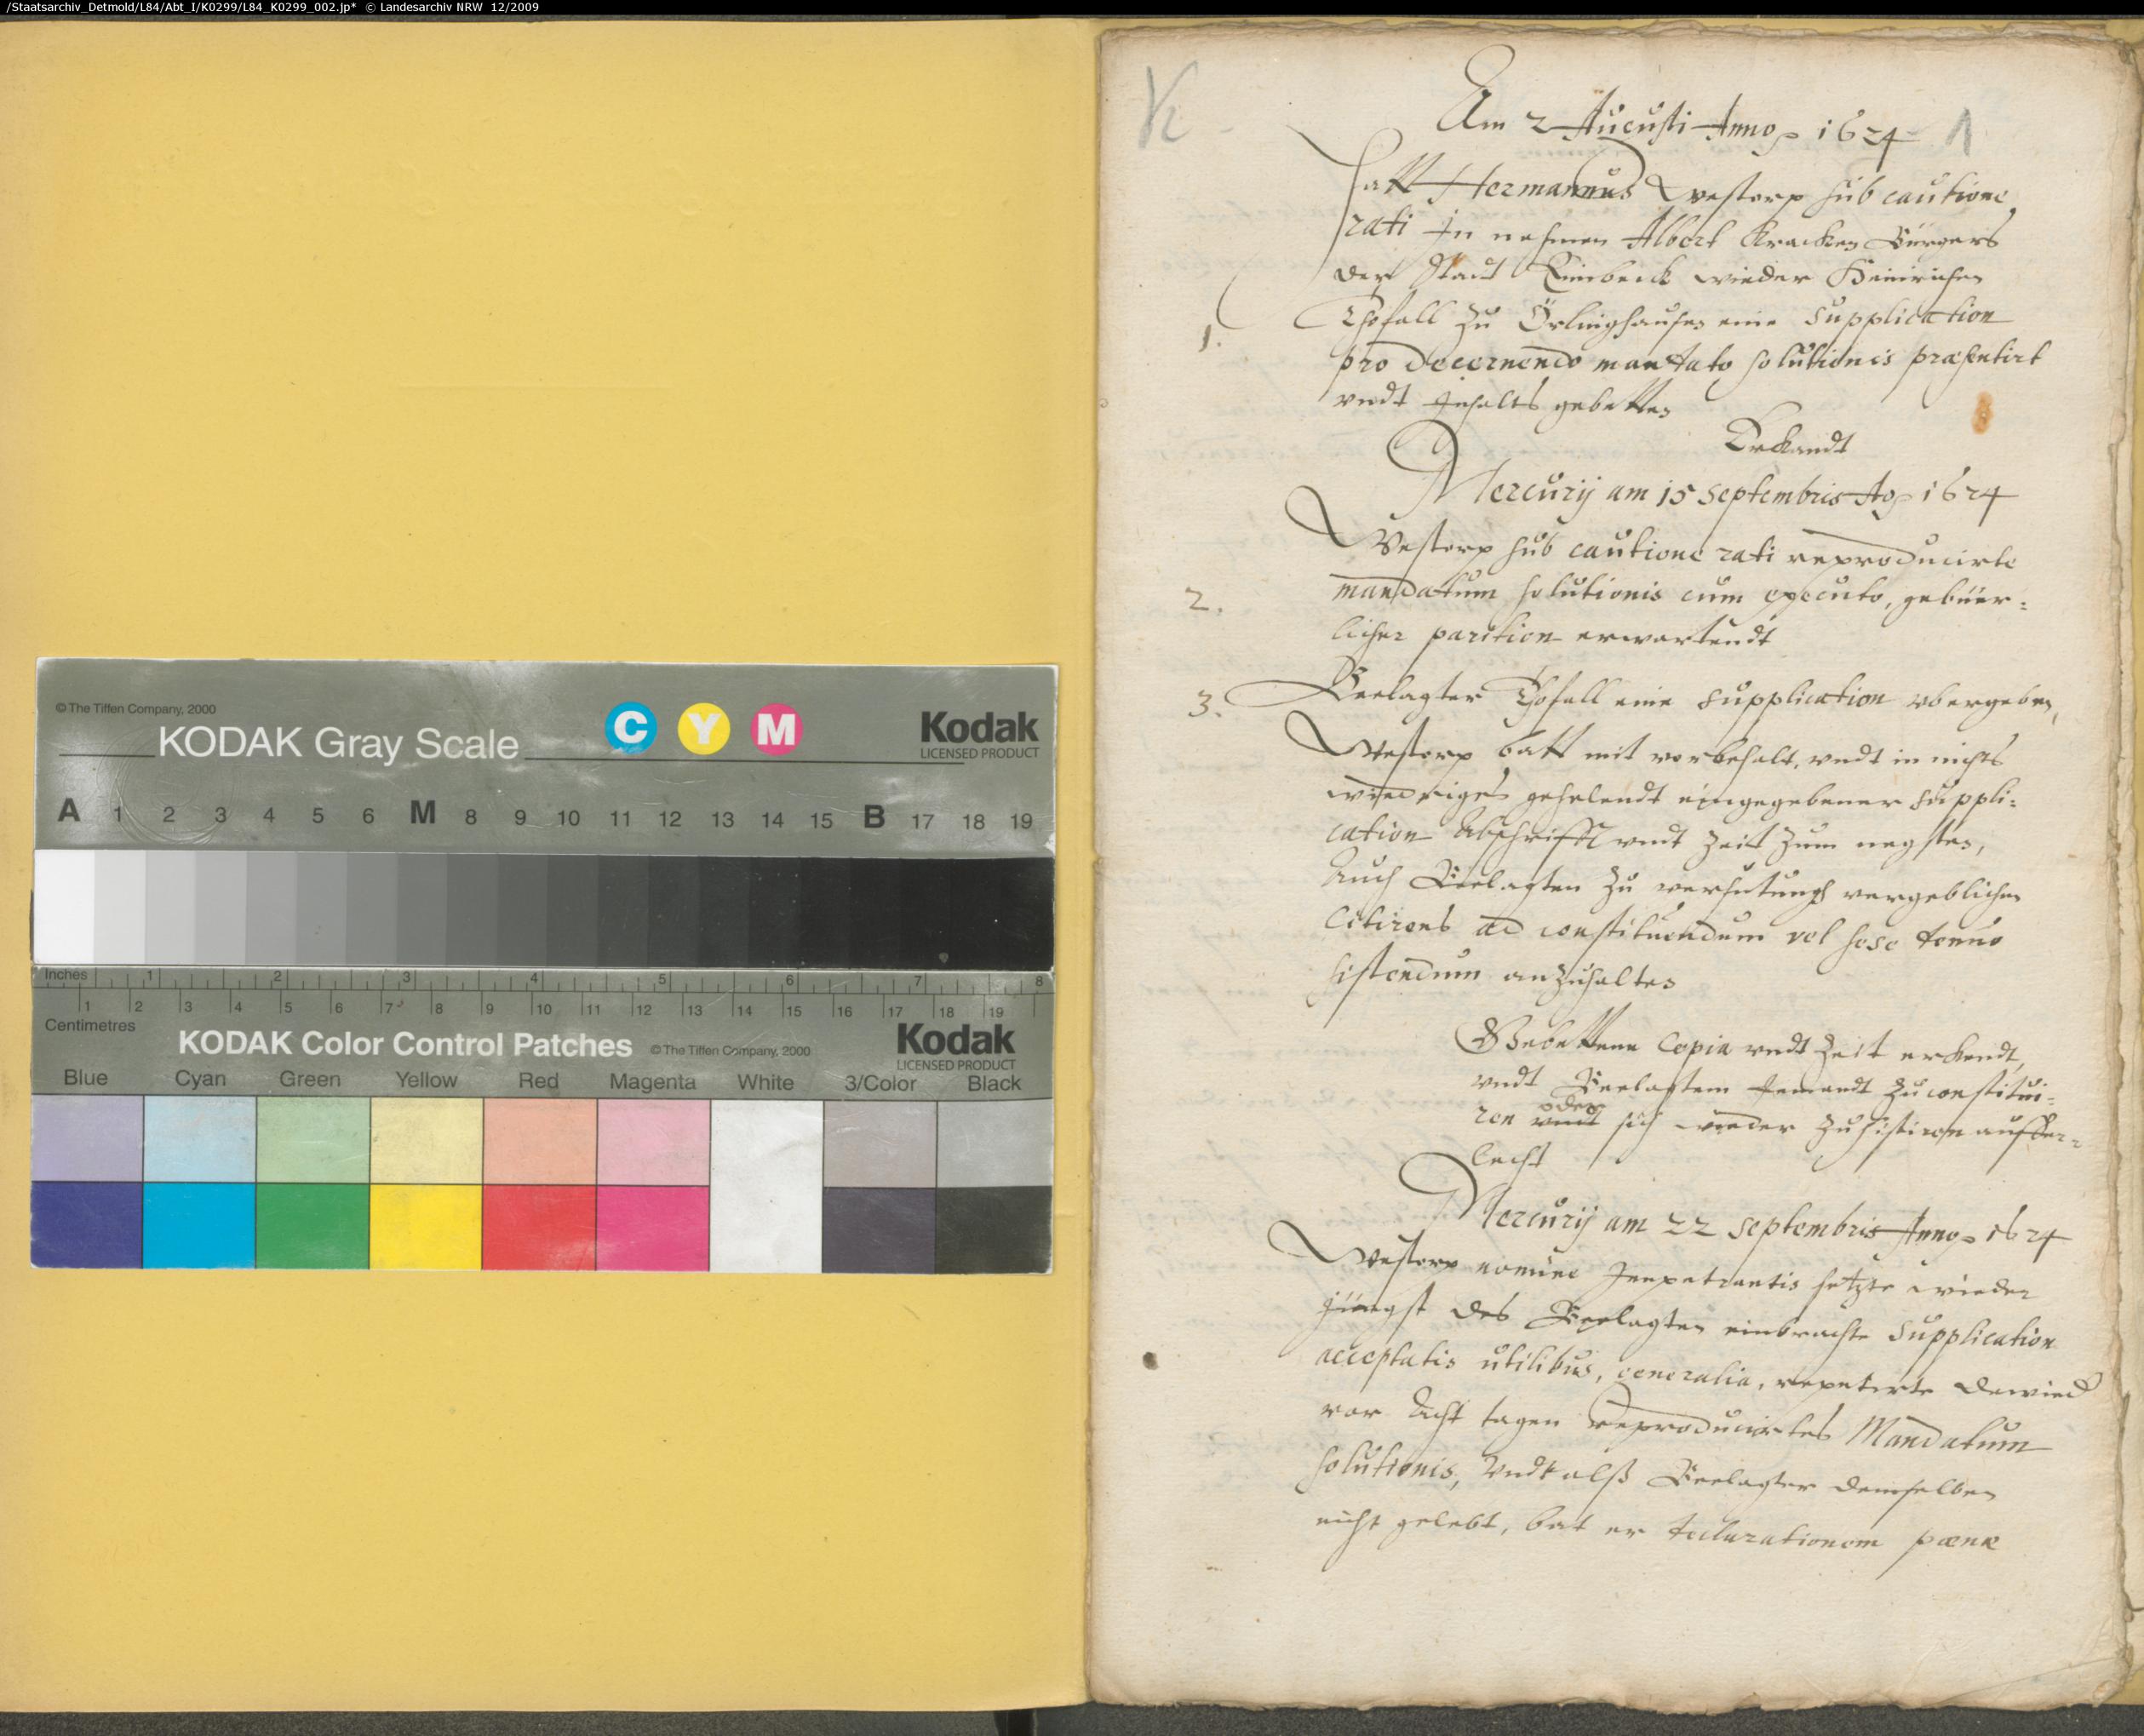 /Staatsarchiv_Detmold/L84/Abt_I/K0299/L84_K0299_002.jp* © Landesarchiv NRW 12/2009
© The Tiffen Company, 2000
KODAK Gray Scale
C Y M
Kodak
LICENSED PRODUCT
A 1 2 3 4 5 6 M 8 9 10 11 12 13 14 15 B 17 18 19
Inches 1 2 3 4 5 6 7 8
1 2 3 4 5 6 7 8 9 10 11 12 13 14 15 16 17 18 19
Centimetres
KODAK Color Control Patches © The Tiffen Company, 2000
Kodak
LICENSED PRODUCT
Blue Cyan Green Yellow Red Magenta White 3/Color Black
K
Am 2 Augusti Anno 1624 1
Hatt Hermannus Westorp sub cautione
rati In nahmen Albert Kracken Bürgers
der Stadt Einbeck wieder Heinrichen
1. Thofall zu Örlinghausen eine Supplication
pro decernendo mantato solutionis præsentirt
vndt Inhalts gebetten
Erkandt
Mercurij am 15 Septembris Ao 1624
Westorp sub cautione rati reproducirte
2. mandatum solutionis cum executo, gebüer-
licher parition erwartendt
3. Beclagter Thofall eine Supplication vbergeben,
Westorp batt mit vorbehalt, vndt in nichts
wiedriges gehelendt eingegebener Suppli-
cation Abschrifft vndt Zeit zum negsten,
Auch Beclagten zu verhutungh vergeblichen
Citirens ad constituendum vel hose tenus
sistendum anzuhalten
Gebettene Copia vndt Zeit erkendt,
vndt Beclagtem Jemandt zu constitui-
oder
ren vndt sich wieder zu sistiren aufer-
lecht
Mercurij am 22 Septembris Anno 1624
Westorp nomine Impetrantis setzte wieder
jüngst des Beclagten einbrachte Supplication
acceptatis utilibus, generalia, repetirte dawied
vor Acht tagen reproducirtes Mandatum
solutionis, Vndt alß Beclagter demselben
nicht gelebt, bat er declarationem pœnæ